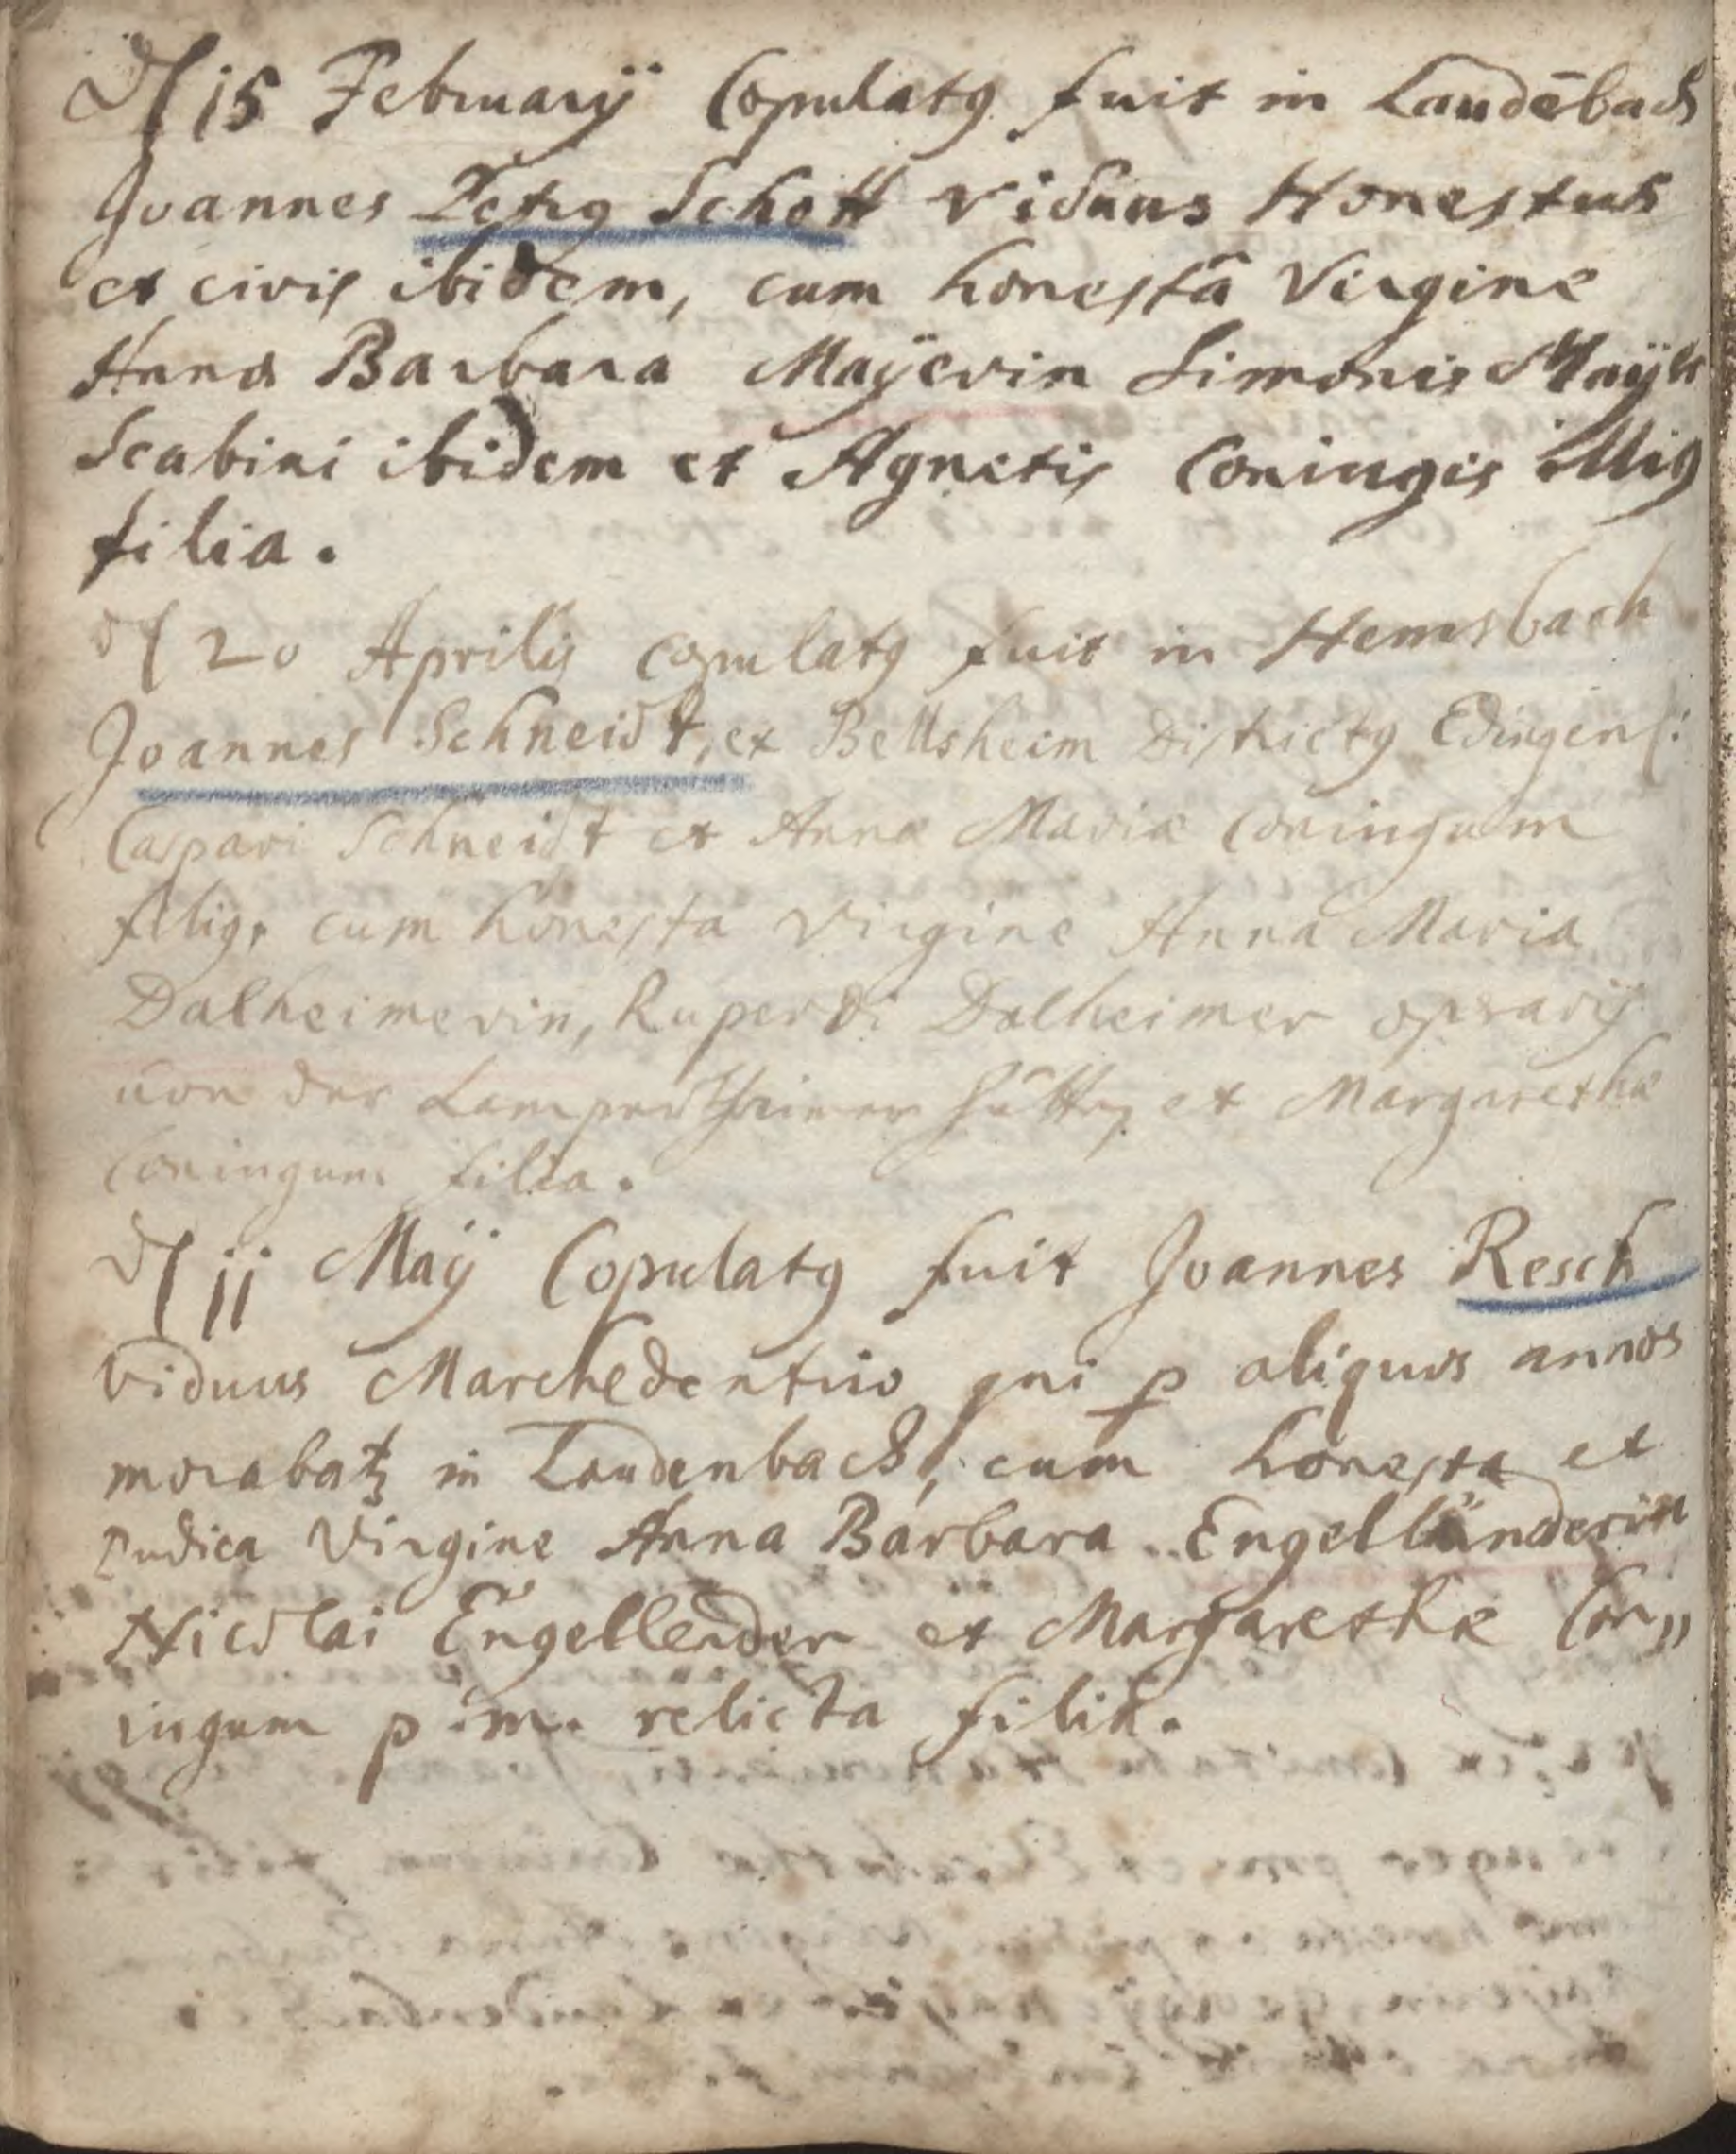 d 15 Februarÿ Copulatg fuit in Laudēbach
Joannes Petrg Schott viduus Honestus
et civis ibidem, cum honestâ Virgine
Anna Barbara Maÿerin Simonis Maÿer
Scabini ibidem et Agnetis Coniugis illig
filia.
d 20 Aprilis copulatg fuit in Hemsbach
Joannes Schneidt, ex Bellsheim Districtg Edingens:
Caspari Schneidt et Annæ Mariæ Coniugum
filig, cum honesta Virgine Anna Maria
Dalheimerin, Ruperti Dalheimer operarÿ
von der Lampertheimer hütten et Margarethæ
Coniugum filia.
d 11 Maÿ Copulatg fuit Joannes Resch
viduus qui p aliquos annos
morabatz in Laudenbach, cum honesta et
Pudica Virgine Anna Barbara Engelländerin
Nicolai Engellender et Margarethæ Con„
iugum p .m. relicta filia.